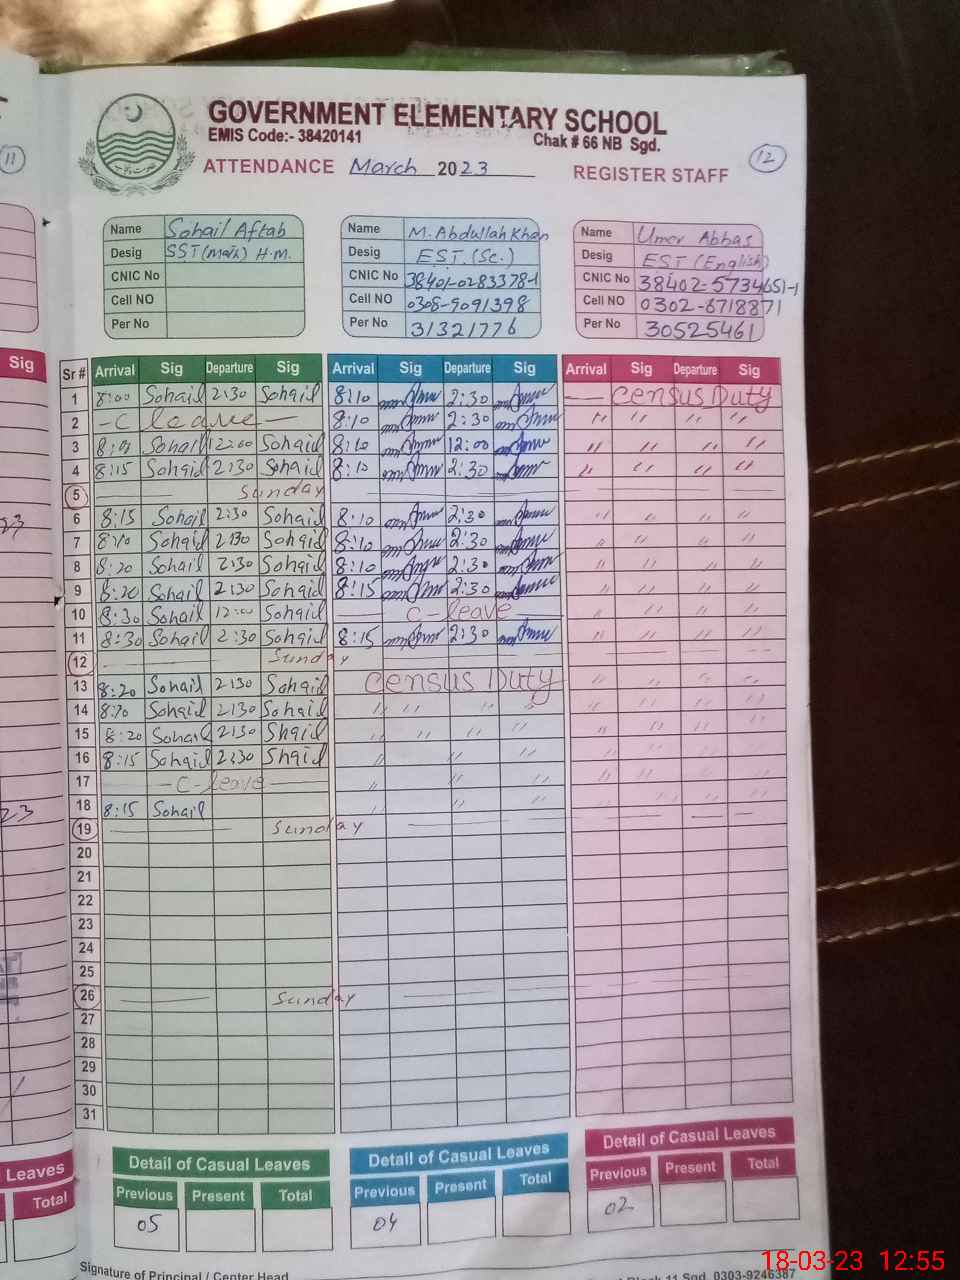 GOVERNMENT ELEMENTARY SCHOOL
EMIS Code:- 38420141 Chak # 66 NB Sgd.
ATTENDANCE March 2023 REGISTER STAFF
11
12
Name Sohail Aftab
Desig SST (math) H.M.
CNIC No
Cell NO
Per No
Name M. Abdullah Khan
Desig EST. (Sc.)
CNIC No 38401-0283378-1
Cell NO 0308-9091398
Per No 31321776
Name Umer Abbas
Desig EST (English)
CNIC No 38402-5734651-1
Cell NO 0302-6718871
Per No 30525461
Sig
Sr # Arrival Sig Departure Sig Arrival Sig Departure Sig Arrival Sig Departure Sig
1 8:00 Sohail 2:30 Sohail 8:10 2:30 — Census Duty
2 -C leave- 8:10 2:30 " " " "
3 Sohail 12:00 Sohail 8:10 12:00 " " " "
4 8:15 Sohail 2:30 Sohail 8:10 2:30 " " " "
5 Sunday
6 8:15 Sohail 2:30 Sohail 8:10 2:30 " " " "
7 8:10 Sohail 2:30 Sohail 8:10 2:30 " " " "
8 8:20 Sohail 2:30 Sohail 8:10 2:30 " " " "
9 8:20 Sohail 2:30 Sohail 8:15 2:30 " " " "
10 8:30 Sohail 12:00 Sohail C-leave " " " "
11 8:30 Sohail 2:30 Sohail 8:15 2:30 " " " "
12 Sunday
13 8:20 Sohail 2:30 Sohail Census Duty " " " "
14 Sohail 2:30 Sohail " " " " " " " "
15 8:20 Sohail 2:30 Shail " " " " " " " "
16 8:15 Sohail 2:30 Shail " " " " " " "
17 -C-leave- " " " " " "
18 8:15 Sohail " " " " " " "
19 Sunday
20
21
22
23
24
25
26 Sunday
27
28
29
30
31
Leaves
Total
Detail of Casual Leaves
Previous Present Total
05
Detail of Casual Leaves
Previous Present Total
04
Detail of Casual Leaves
Previous Present Total
02
Signature of Principal / Center Head
Block 11 Sgd. 0303-9246387
18-03-23 12:55